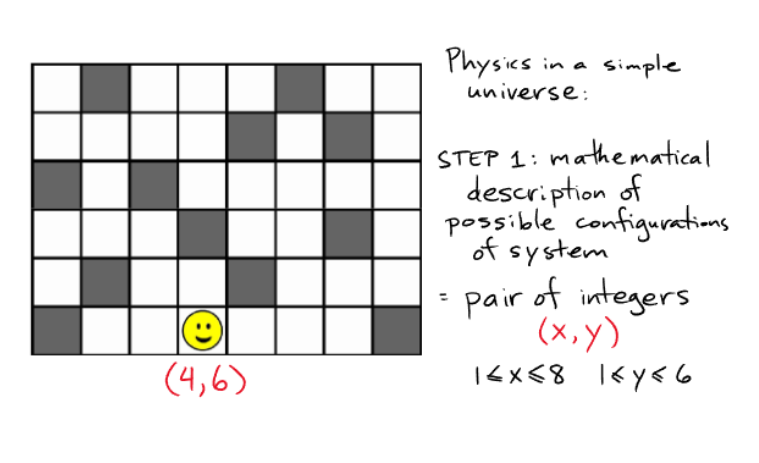 Physics in a simple
universe:
STEP 1: mathematical
description of
possible configurations
of system
= pair of integers
(x,y)
1≤x≤8 1≤y≤6
(4,6)